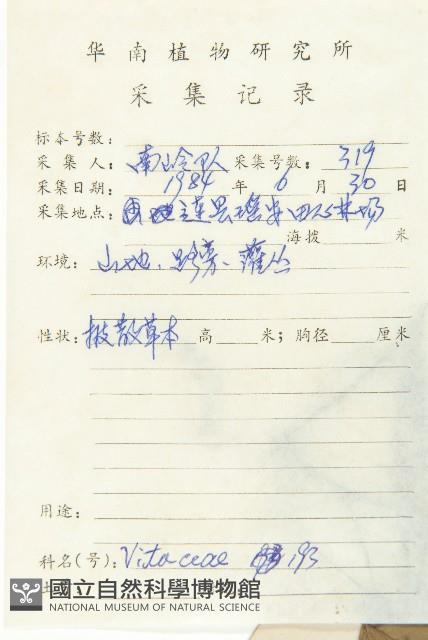 华南植物研究所
采集记录
标本号数:
采集人: 南岭队 采集号数: 319
采集日期: 1984 年 6 月 30 日
采集地点: 连县瑶安田心林场
海拨 米
环境: 山地、路旁、灌丛
性状: 披散草本 高 米; 胸径 厘米
用途:
科名(号): Vitaceae 193
國立自然科學博物館
NATIONAL MUSEUM OF NATURAL SCIENCE